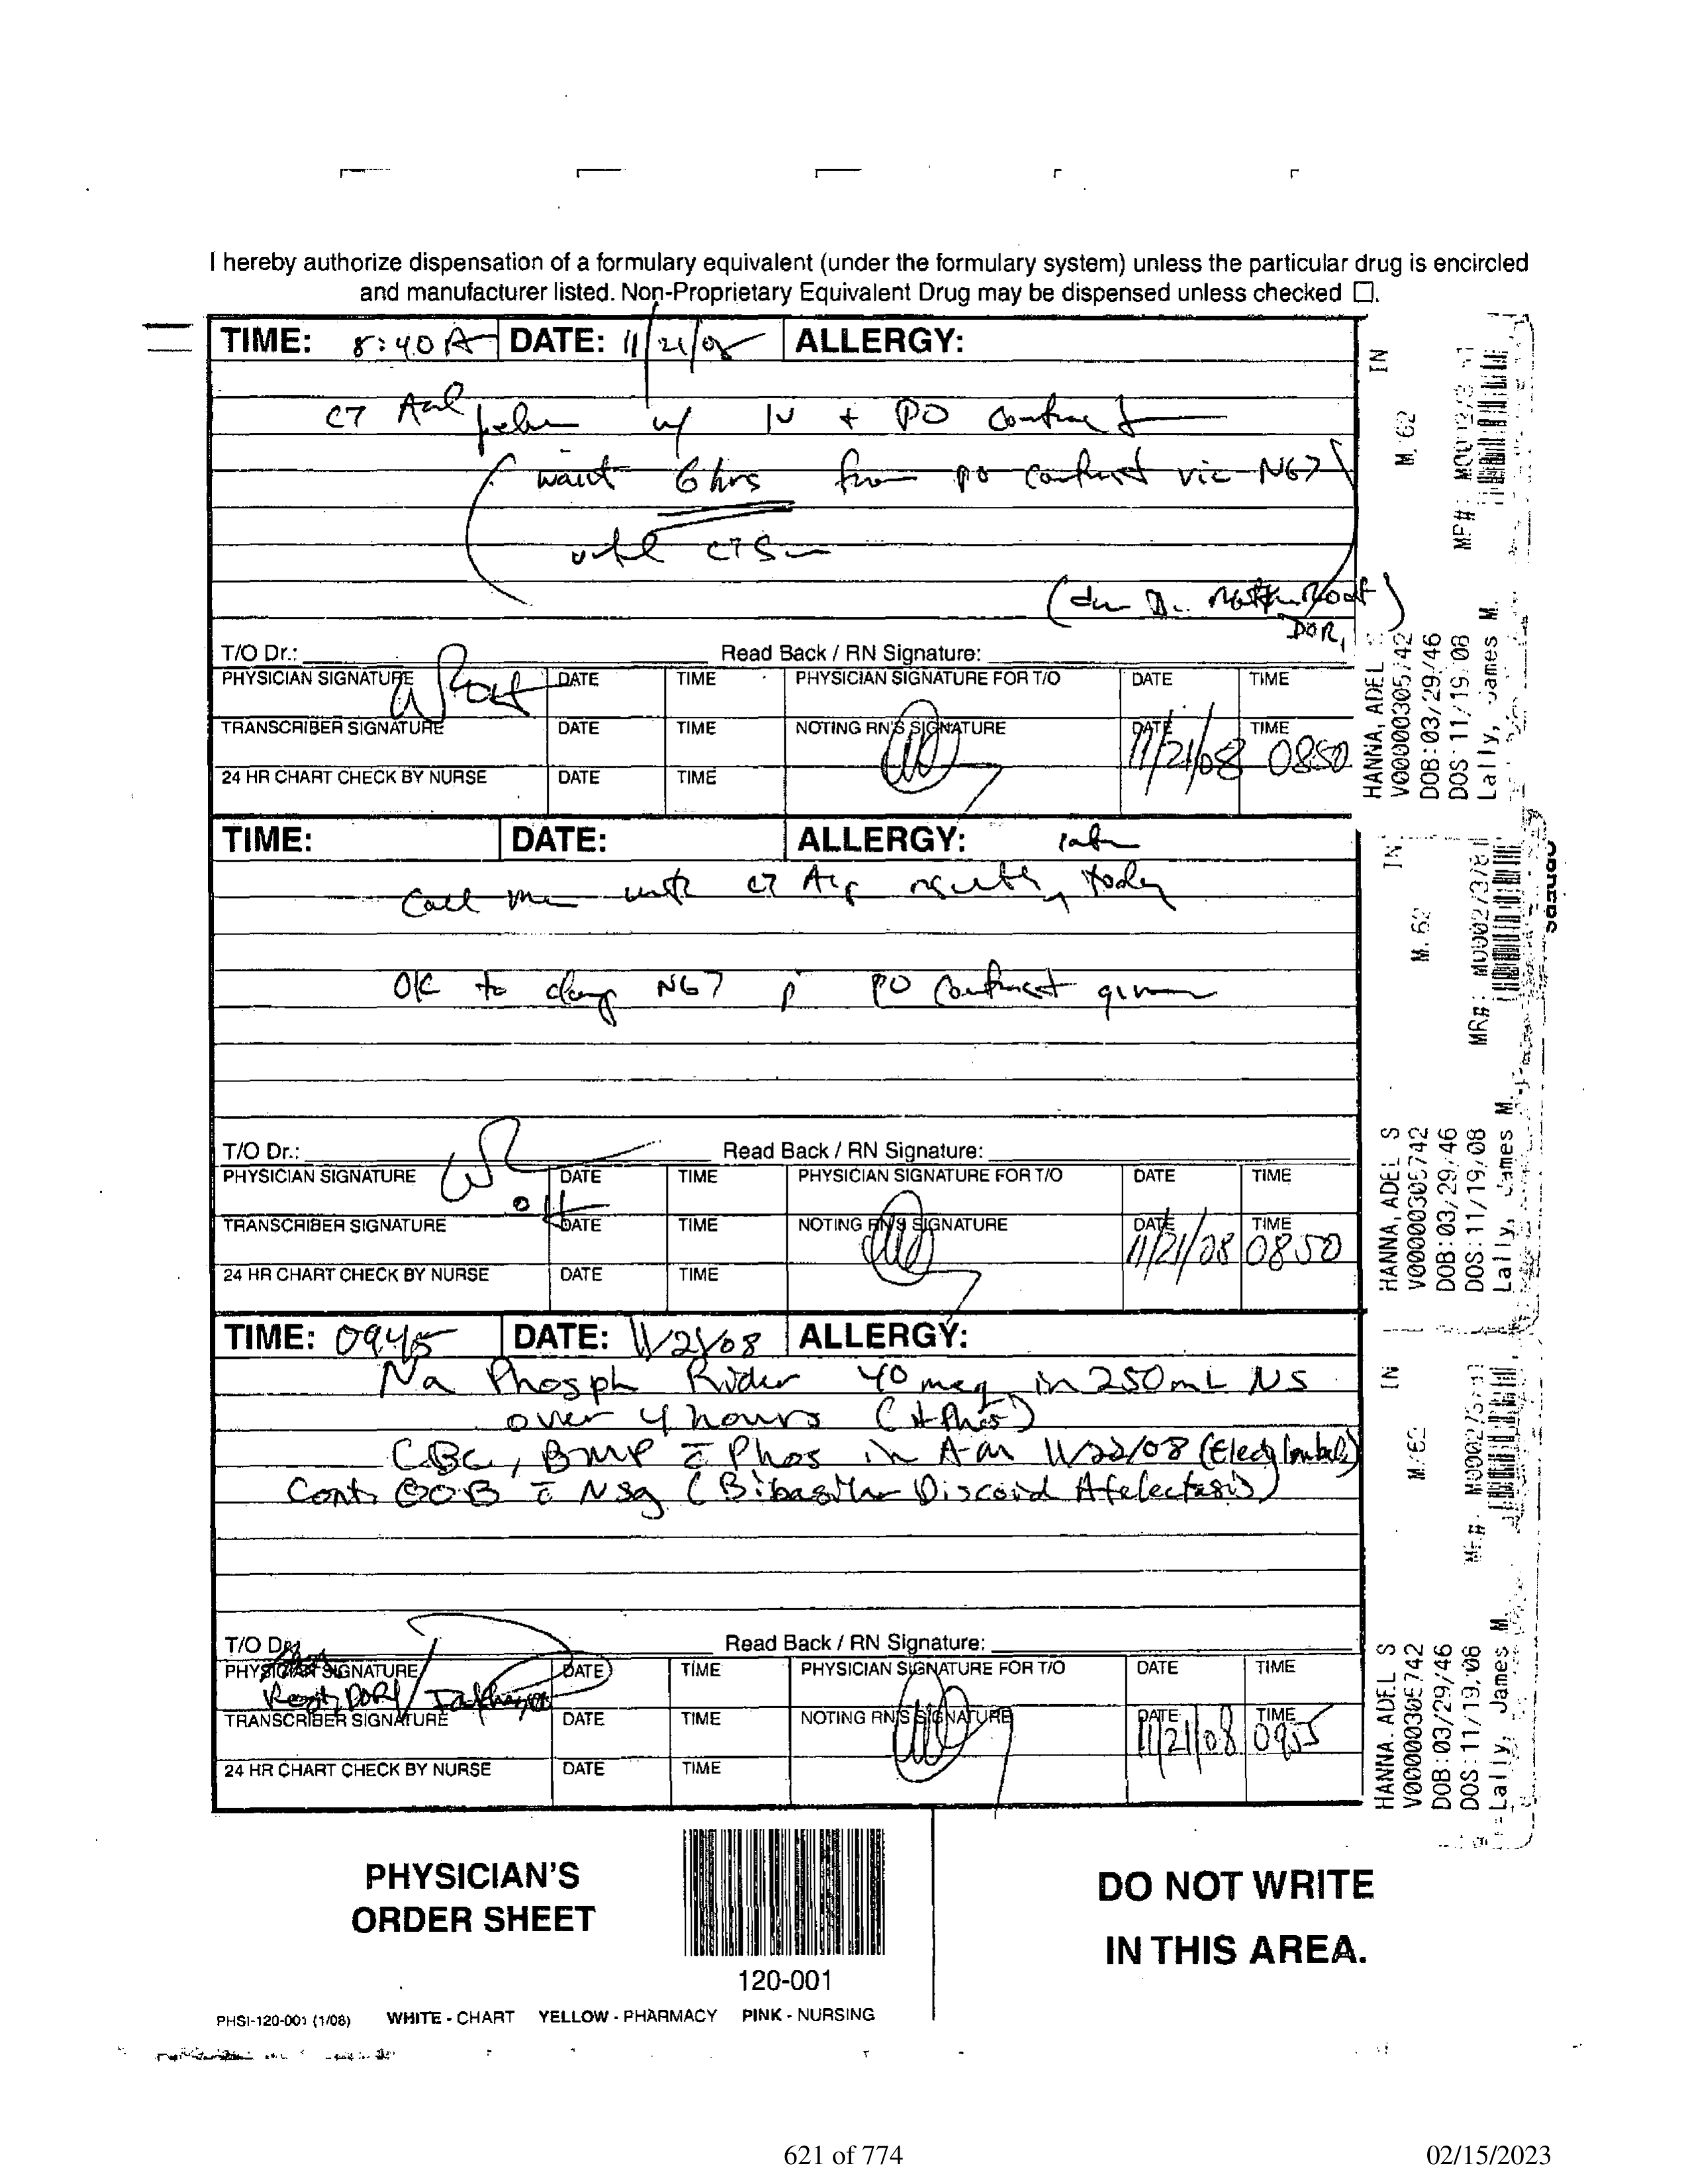 I hereby authorize dispensation of a formulary equivalent (under the formulary system) unless the particular drug is encircled
and manufacturer listed. Non-Proprietary Equivalent Drug may be dispensed unless checked ☐.
TIME: 8:40 A DATE: 11/21/08 ALLERGY:
CT Abd pelvis w/ IV + PO contrast
(wait 6 hrs from po contrast via NGT
until CT Scan
T/O Dr.: Read Back / RN Signature:
PHYSICIAN SIGNATURE DATE TIME PHYSICIAN SIGNATURE FOR T/O DATE TIME
TRANSCRIBER SIGNATURE DATE TIME NOTING RN'S SIGNATURE DATE 11/21/08 TIME 0850
24 HR CHART CHECK BY NURSE DATE TIME
IN
M/62
HANNA, ADEL S
V00000305742
DOB:03/29/46
DOS:11/19/08
Lally, James M.
TIME: DATE: ALLERGY:
Call me with CT A/P results today
OK to clamp NGT p PO contrast given
T/O Dr.: Read Back / RN Signature:
PHYSICIAN SIGNATURE DATE TIME PHYSICIAN SIGNATURE FOR T/O DATE TIME
TRANSCRIBER SIGNATURE DATE TIME NOTING RN'S SIGNATURE DATE 11/21/08 TIME 0850
24 HR CHART CHECK BY NURSE DATE TIME
IN
M/62
ORDERS
HANNA, ADEL S
V00000305742
DOB:03/29/46
DOS:11/19/08
Lally, James M.
TIME: 0945 DATE: 11/21/08 ALLERGY:
Na Phosph Rider 40 meq in 250 mL NS
over 4 hours (↓Phos)
CBC, BMP c̄ Phos in A-m 11/22/08
Cont. OOB c̄ Nsg (Bibasilar Discoid Atelectasis)
T/O Dr.: Read Back / RN Signature:
PHYSICIAN SIGNATURE DATE TIME PHYSICIAN SIGNATURE FOR T/O DATE TIME
TRANSCRIBER SIGNATURE DATE TIME NOTING RN'S SIGNATURE DATE 11/21/08 TIME 0955
24 HR CHART CHECK BY NURSE DATE TIME
IN
M/62
HANNA, ADEL S
V00000305742
DOB:03/29/46
DOS:11/19/08
Lally, James M.
PHYSICIAN'S
ORDER SHEET
120-001
DO NOT WRITE
IN THIS AREA.
PHSI-120-001 (1/08) WHITE - CHART YELLOW - PHARMACY PINK - NURSING
621 of 774 02/15/2023